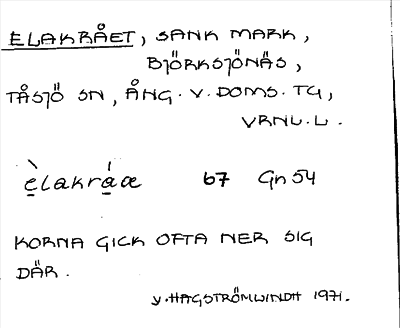 ELAKRÅET, SANK MARK,
BJÖRKSJÖNÄS,
TÅSJÖ SN, ÅNG. V. DOMS. TG,
VRNL.L.
è̱lakrá̱æ 67 Gn 54
KORNA GICK OFTA NER SIG
DÄR.
V. HAGSTRÖMWINDH 1971.